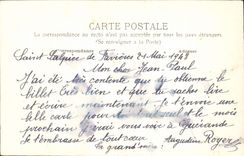 CARTE POSTALE
La correspondance au recto n'est pas acceptée par tous les pays étrangers
(Se renseigner à la Poste)
Saint Sulpice de Favières 21 Mai 1941
Mon cher Jean-Paul
J'ai été très contente que tu obtienne le
billet Très bien et que tu saches lire
et écrire maintenant je t'envoie une
belle carte pour et le mois
prochain j'irai vous voir à
Je t'embrasse de tout cœur Augustine Royer
Ta grand'mère